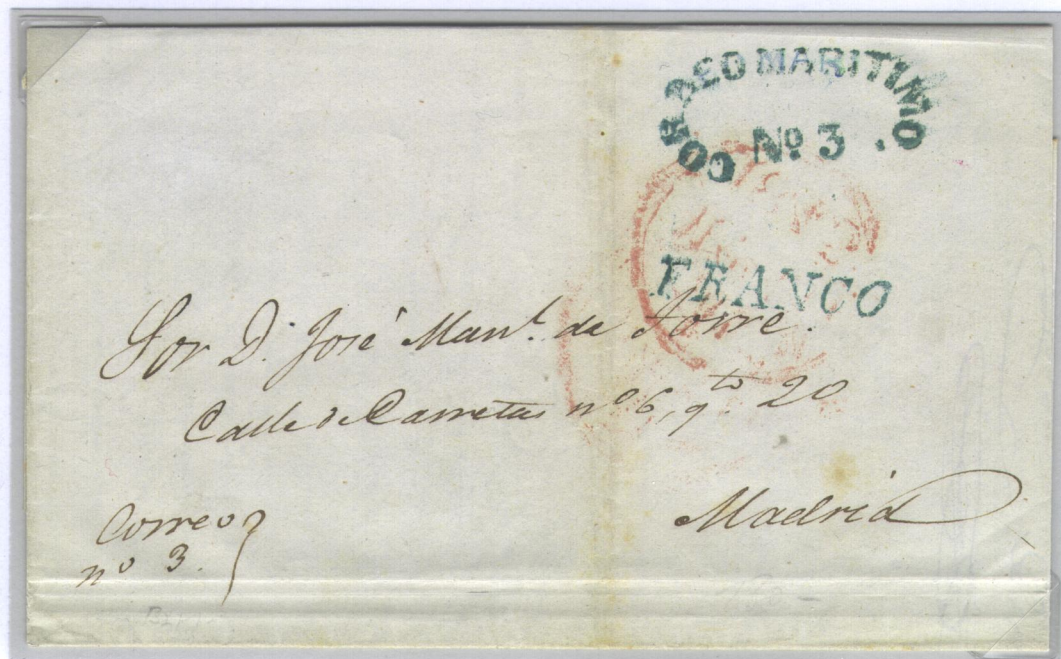 CORREO MARITIMO
Nº 3
FRANCO
Sor D. José Manl. de Torre.
Calle de Carretas nº 6, qto. 20
Madrid
Correo
nº 3.